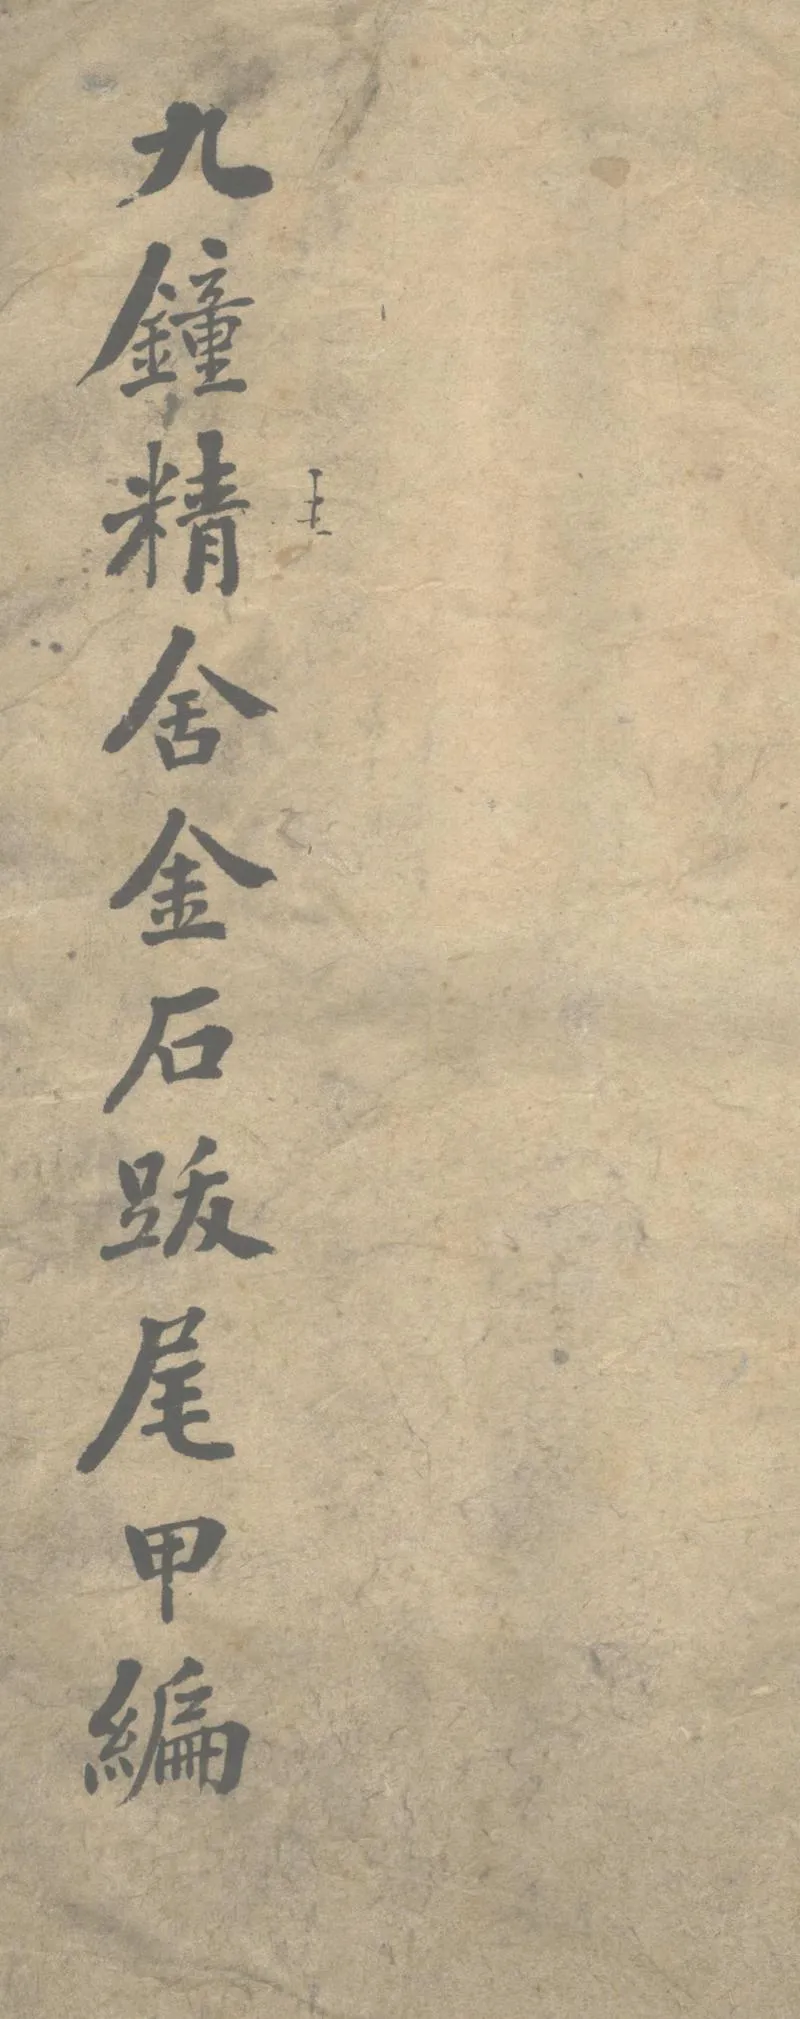 九鐘精舍金石跋尾甲編